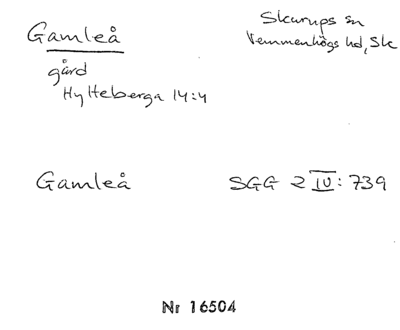 Gamleå
Skurups sn
Vemmenhögs hd, Sk
gård
Hylteberga 14:4
Gamleå
SGG 2 IV: 739
Nr 16504